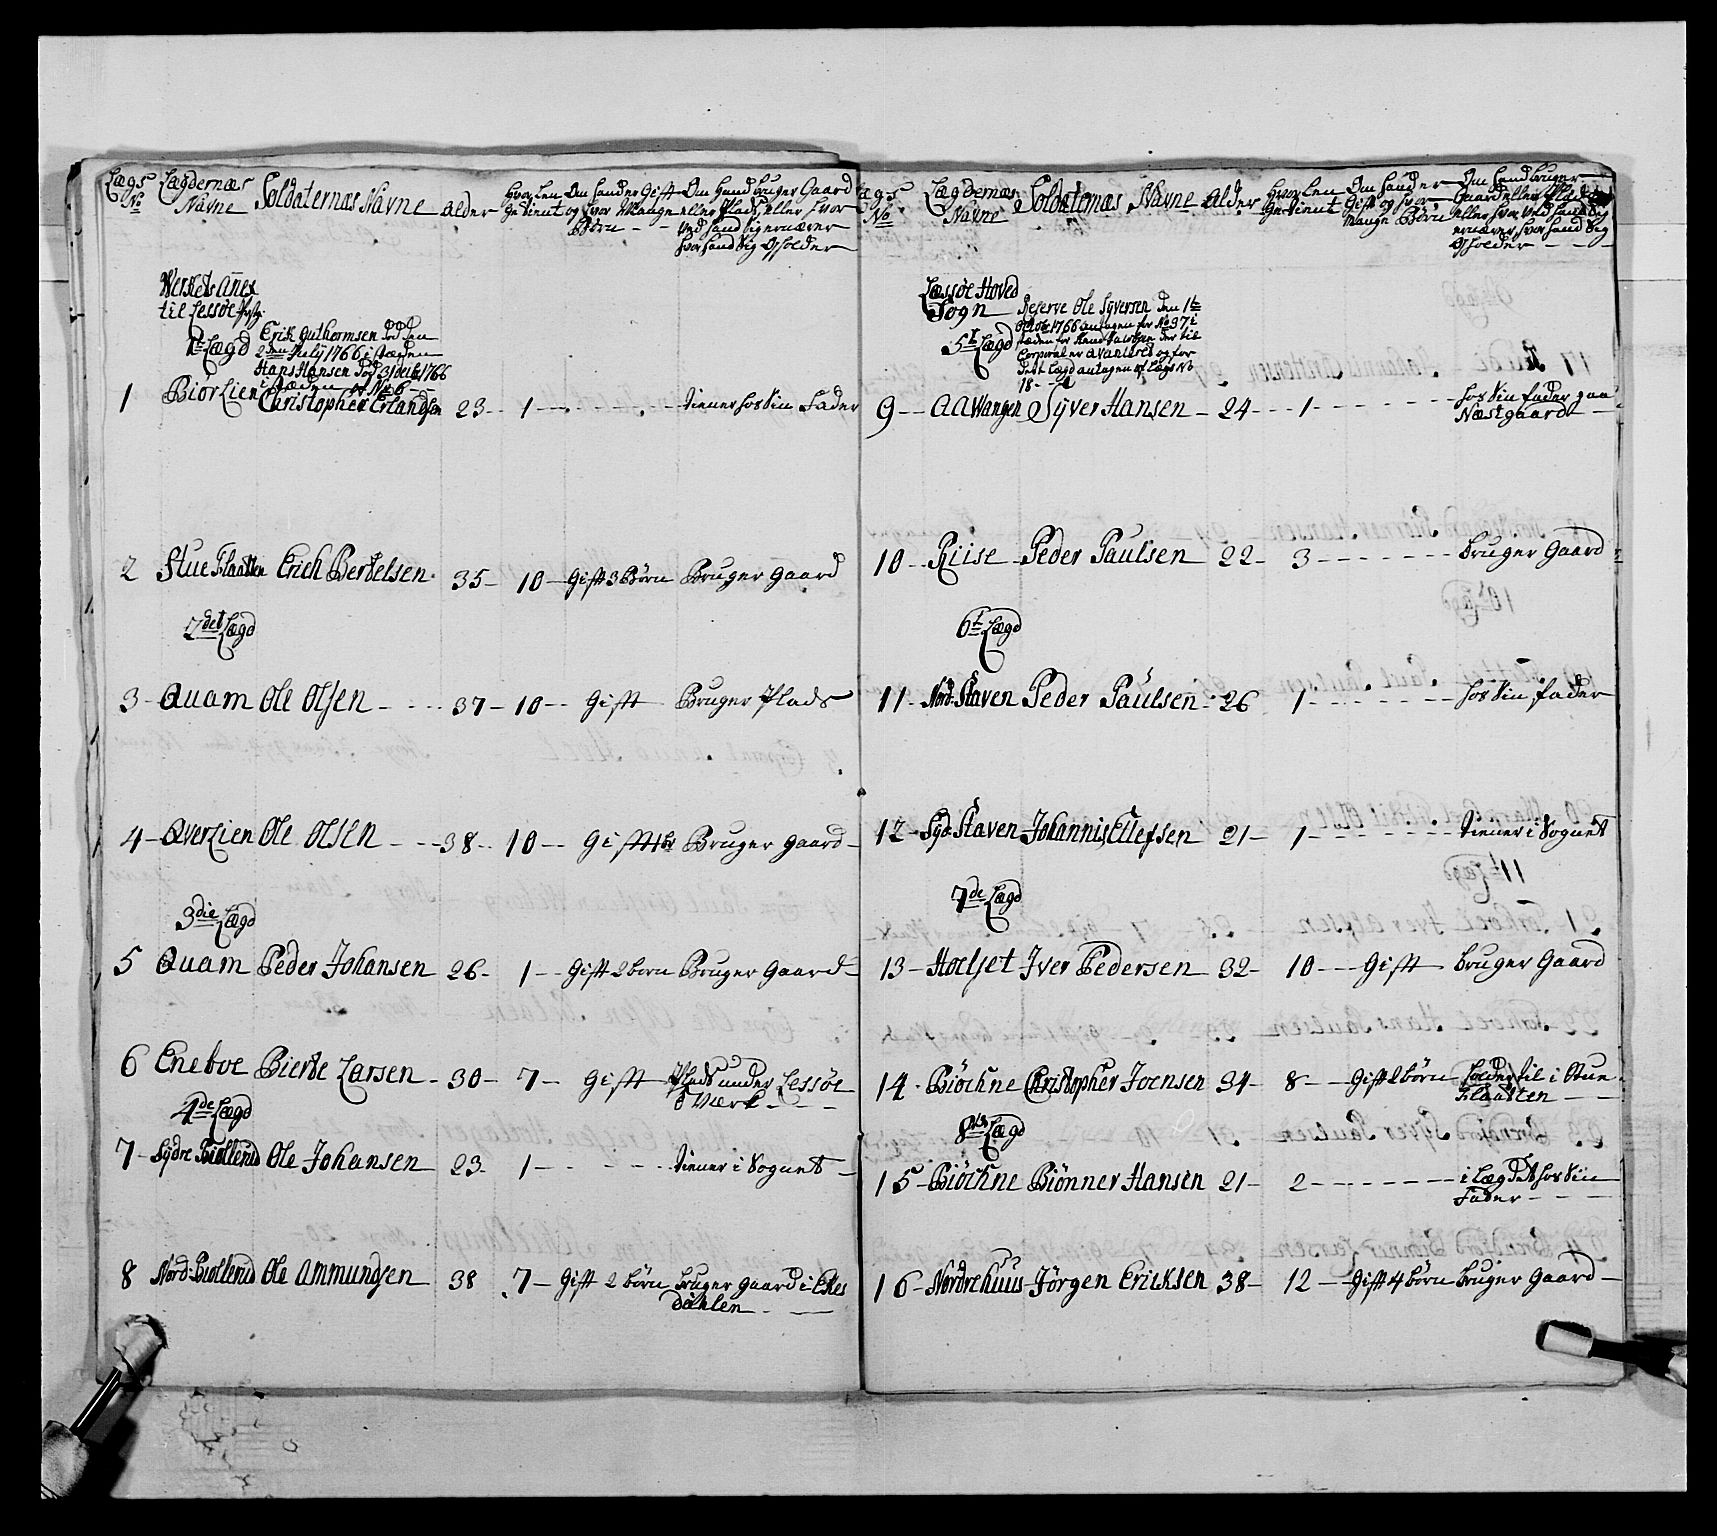 Lægs No | Lægdernæs Navne | Soldaternæs Navne | Alder | Hvor Len Gedienut | Om hand er Gift og hvor Mange Børn | Om Hand bruger Gaard eller Plads, eller hvor Ved hand sig ernærer hvor hand sig Opholder
Werkets Anex
til Lessøe
1te Lægd
Erik Guthormsen Død den
2den July 1766 i stæden
Hans Hansen Død 3 octbr 1766
i stæden af No 6
1 Biorlien Christopher Erlandsen 23 1 tiener hos sin Fader
2 Stue Flaatten Erich Bertelsen 35 10 Gift 3 Børn Bruger Gaard
2det Lægd
3 Quam Ole Olsen 37 10 Gift Bruger Plads
4 Øverlien Ole Olsen 38 10 Gift 1 b Bruger Gaard
3die Lægd
5 Quam Peder Johansen 26 1 Gift 2 børn Bruger Gaard
6 Eneboe Bierte Larsen 30 7 Gift Plads under Lessøe
Værk
4de Lægd
7 Sydre Biøllend Ole Johansen 23 1 tiener i Sognet
8 Nord: Biøllend Ole Ammundsen 38 7 Gift 2 børn bruger Gaard i Ekes
dahlen
Lægs No | Lægdernæs Navne | Soldaternæs Navne | Alder | Hvor Len Gedienut | Om hand er Gift og hvor mange Børn | Om hand bruger Gaard eller Plads eller hvor Ved hand sig ernærer, hvor hand sig Opholder
Læssøe Hoved
Sogn
5t Lægd
Reserve Ole Syversen den 1te
octobr 1766 antagen for No 97 i
stæden for Knud Jacobsen der til
Corporal er avanseret og for
dette Lægd antagen af Lægs No
18
9 Aawangen Syver Hansen 24 1 hos sin fader paa
Næstgaard
10 Riise Peder Paulsen 22 3 bruger Gaard
6t Lægd
11 Nord-Staven Peder Paulsen 26 1 hos sin fader
12 Syd-Staven Johannis Ellefsen 21 1 tiener i Sognet
7de Lægd
13 Hoelset Iver Pedersen 32 10 Gift bruger Gaard
14 Biøchne Christopher Joensen 34 8 Gift 2 børn holder til i Stue
Flaatten
8de Lægd
15 Biøchne Biønner Hansen 21 2 i Lægdet hos sin
Fader
16 Nordrehuus Jørgen Ericksen 38 12 Gift 4 børn bruger Gaard